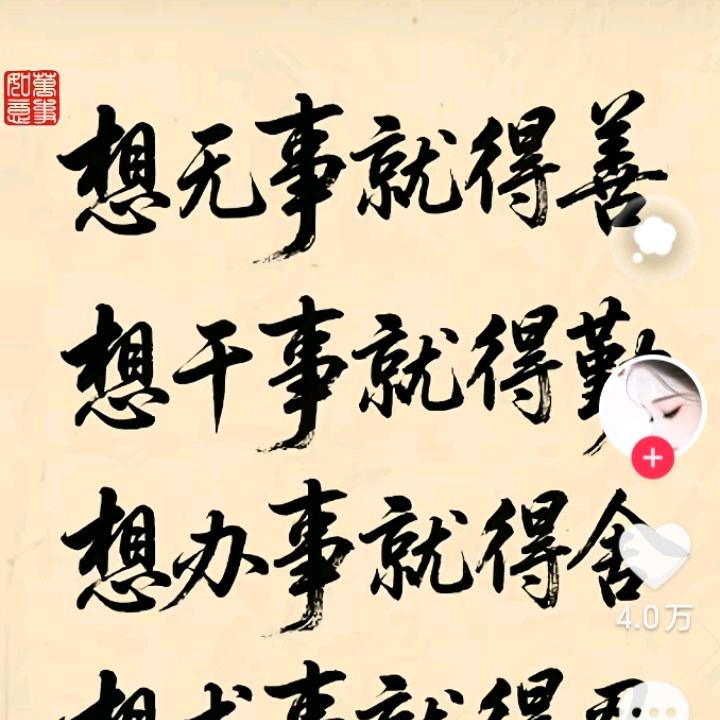 萬事如意
想无事就得善
想干事就得勤
想办事就得舍
4.0万
想成事就得